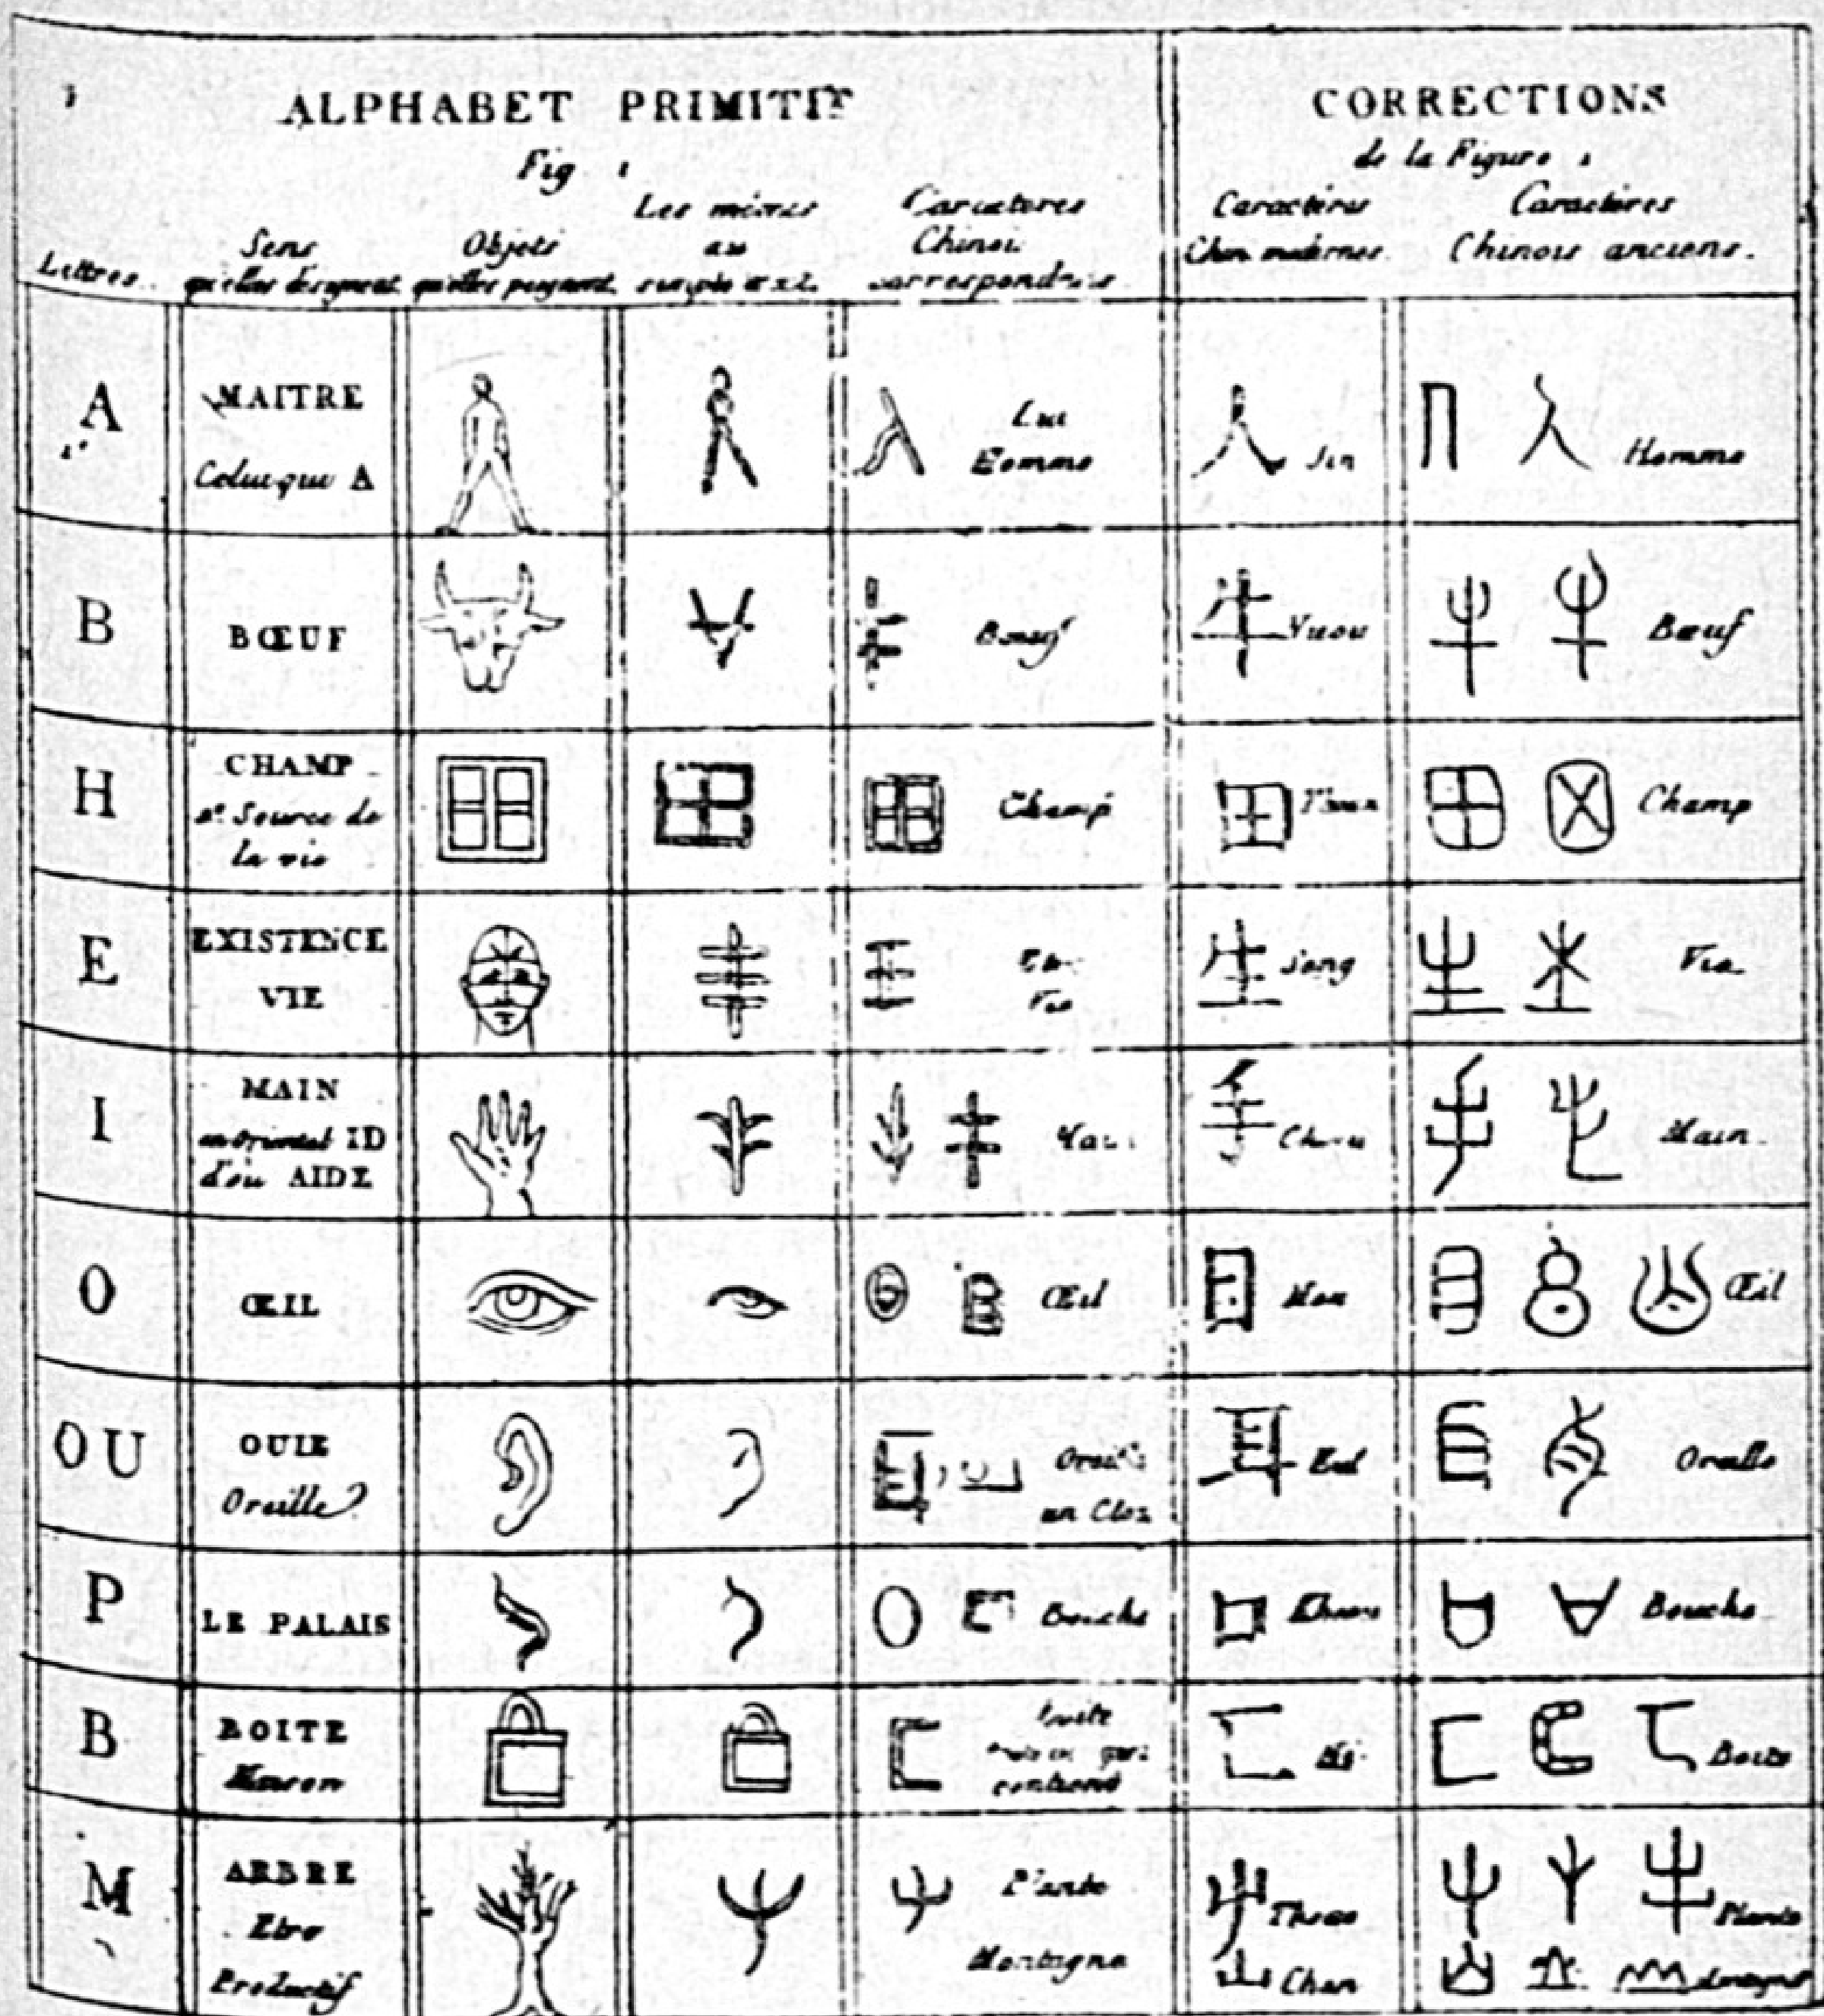 ALPHABET PRIMITIF
Fig. 1
CORRECTIONS
de la Figure 1
Lettres.
Sens
qu'elles désignent
Objets
qu'elles peignent
Les mêmes
au
Caracteres
Chinois
correspondans
Caractères
Chin. modernes.
Caractères
Chinois anciens.
A
1°
MAITRE
Celui qui A
Homme
人 Jin
Homme
B
BŒUF
Bœuf
牛
Bœuf
H
CHAMP
2° Source de
la vie
Champ
田
Champ
E
EXISTENCE
VIE
生 Seng
Vie
I
MAIN
en oriental ID
d'ou AIDE
手
Main
O
ŒIL
Œil
目
Œil
OU
OUIE
Oreille
耳 Eul
Oreille
P
LE PALAIS
Bouche
口
Bouche
B
BOITE
Maison
contient
匚
Boite
M
ARBRE
Etre
Productif
Plante
Montagne
屮
山 Chan
Plante